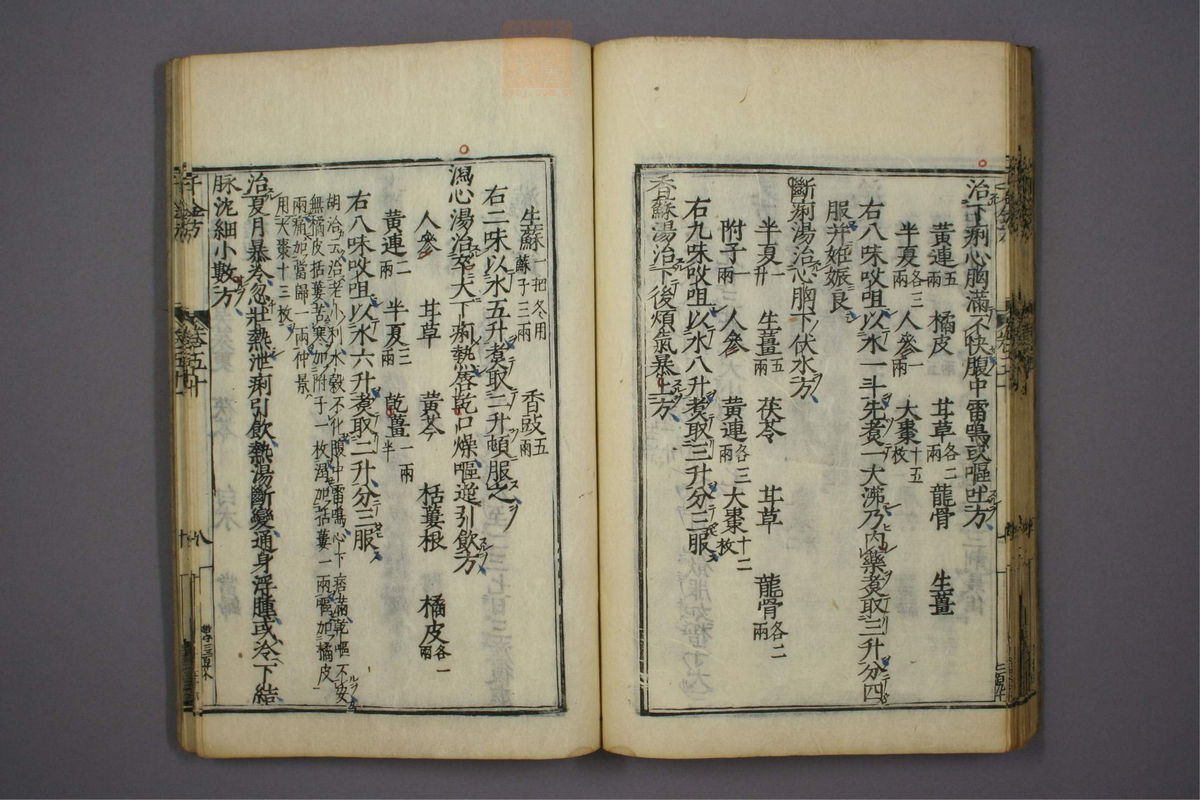 治下痢心胸滿不快腹中雷鳴或嘔吐方
黄連五兩 橘皮 茸草各二兩 龍骨 生薑
半夏各三兩 人參一兩 大棗十五枚
右八味㕮咀以水一斗先煮一大沸乃内藥煮取三升分四
服并妊娠良
斷痢湯治心胸下伏水方
半夏一升 生薑五兩 茯苓 茸草 龍骨各二兩
附子一兩 人參 黄連各三兩 大棗十二枚
右九味㕮咀以水八升煮取三升分三服
香蘇湯治下後煩氣暴上方
生蘇一把冬用蘇子三兩 香豉五兩
右二味以水五升煮取二升頓服之
瀉心湯治卒大下痢熱唇乾口燥嘔逆引飲方
人參 茸草 黄芩 栝蔞根 橘皮各一兩
黄連二兩 半夏三兩 乾薑一兩半
右八味㕮咀以水六升煮取二升分三服
胡洽云治老小利水穀不化腹中雷鳴心下痞滿乾嘔不安
無橘皮栝蔞若寒加附子一枚渴加栝蔞一兩嘔加橘皮一
兩痛加當歸一兩仲景
用大棗十三枚
治夏月暴冷忽壯熱泄痢引飲熱湯斷變通身浮腫或冷下結
脉沈細小數方
千金方
卷五十